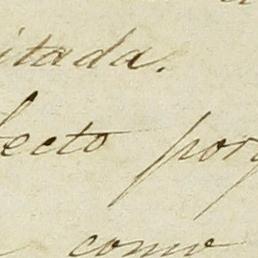 itada.
fecto porq
como